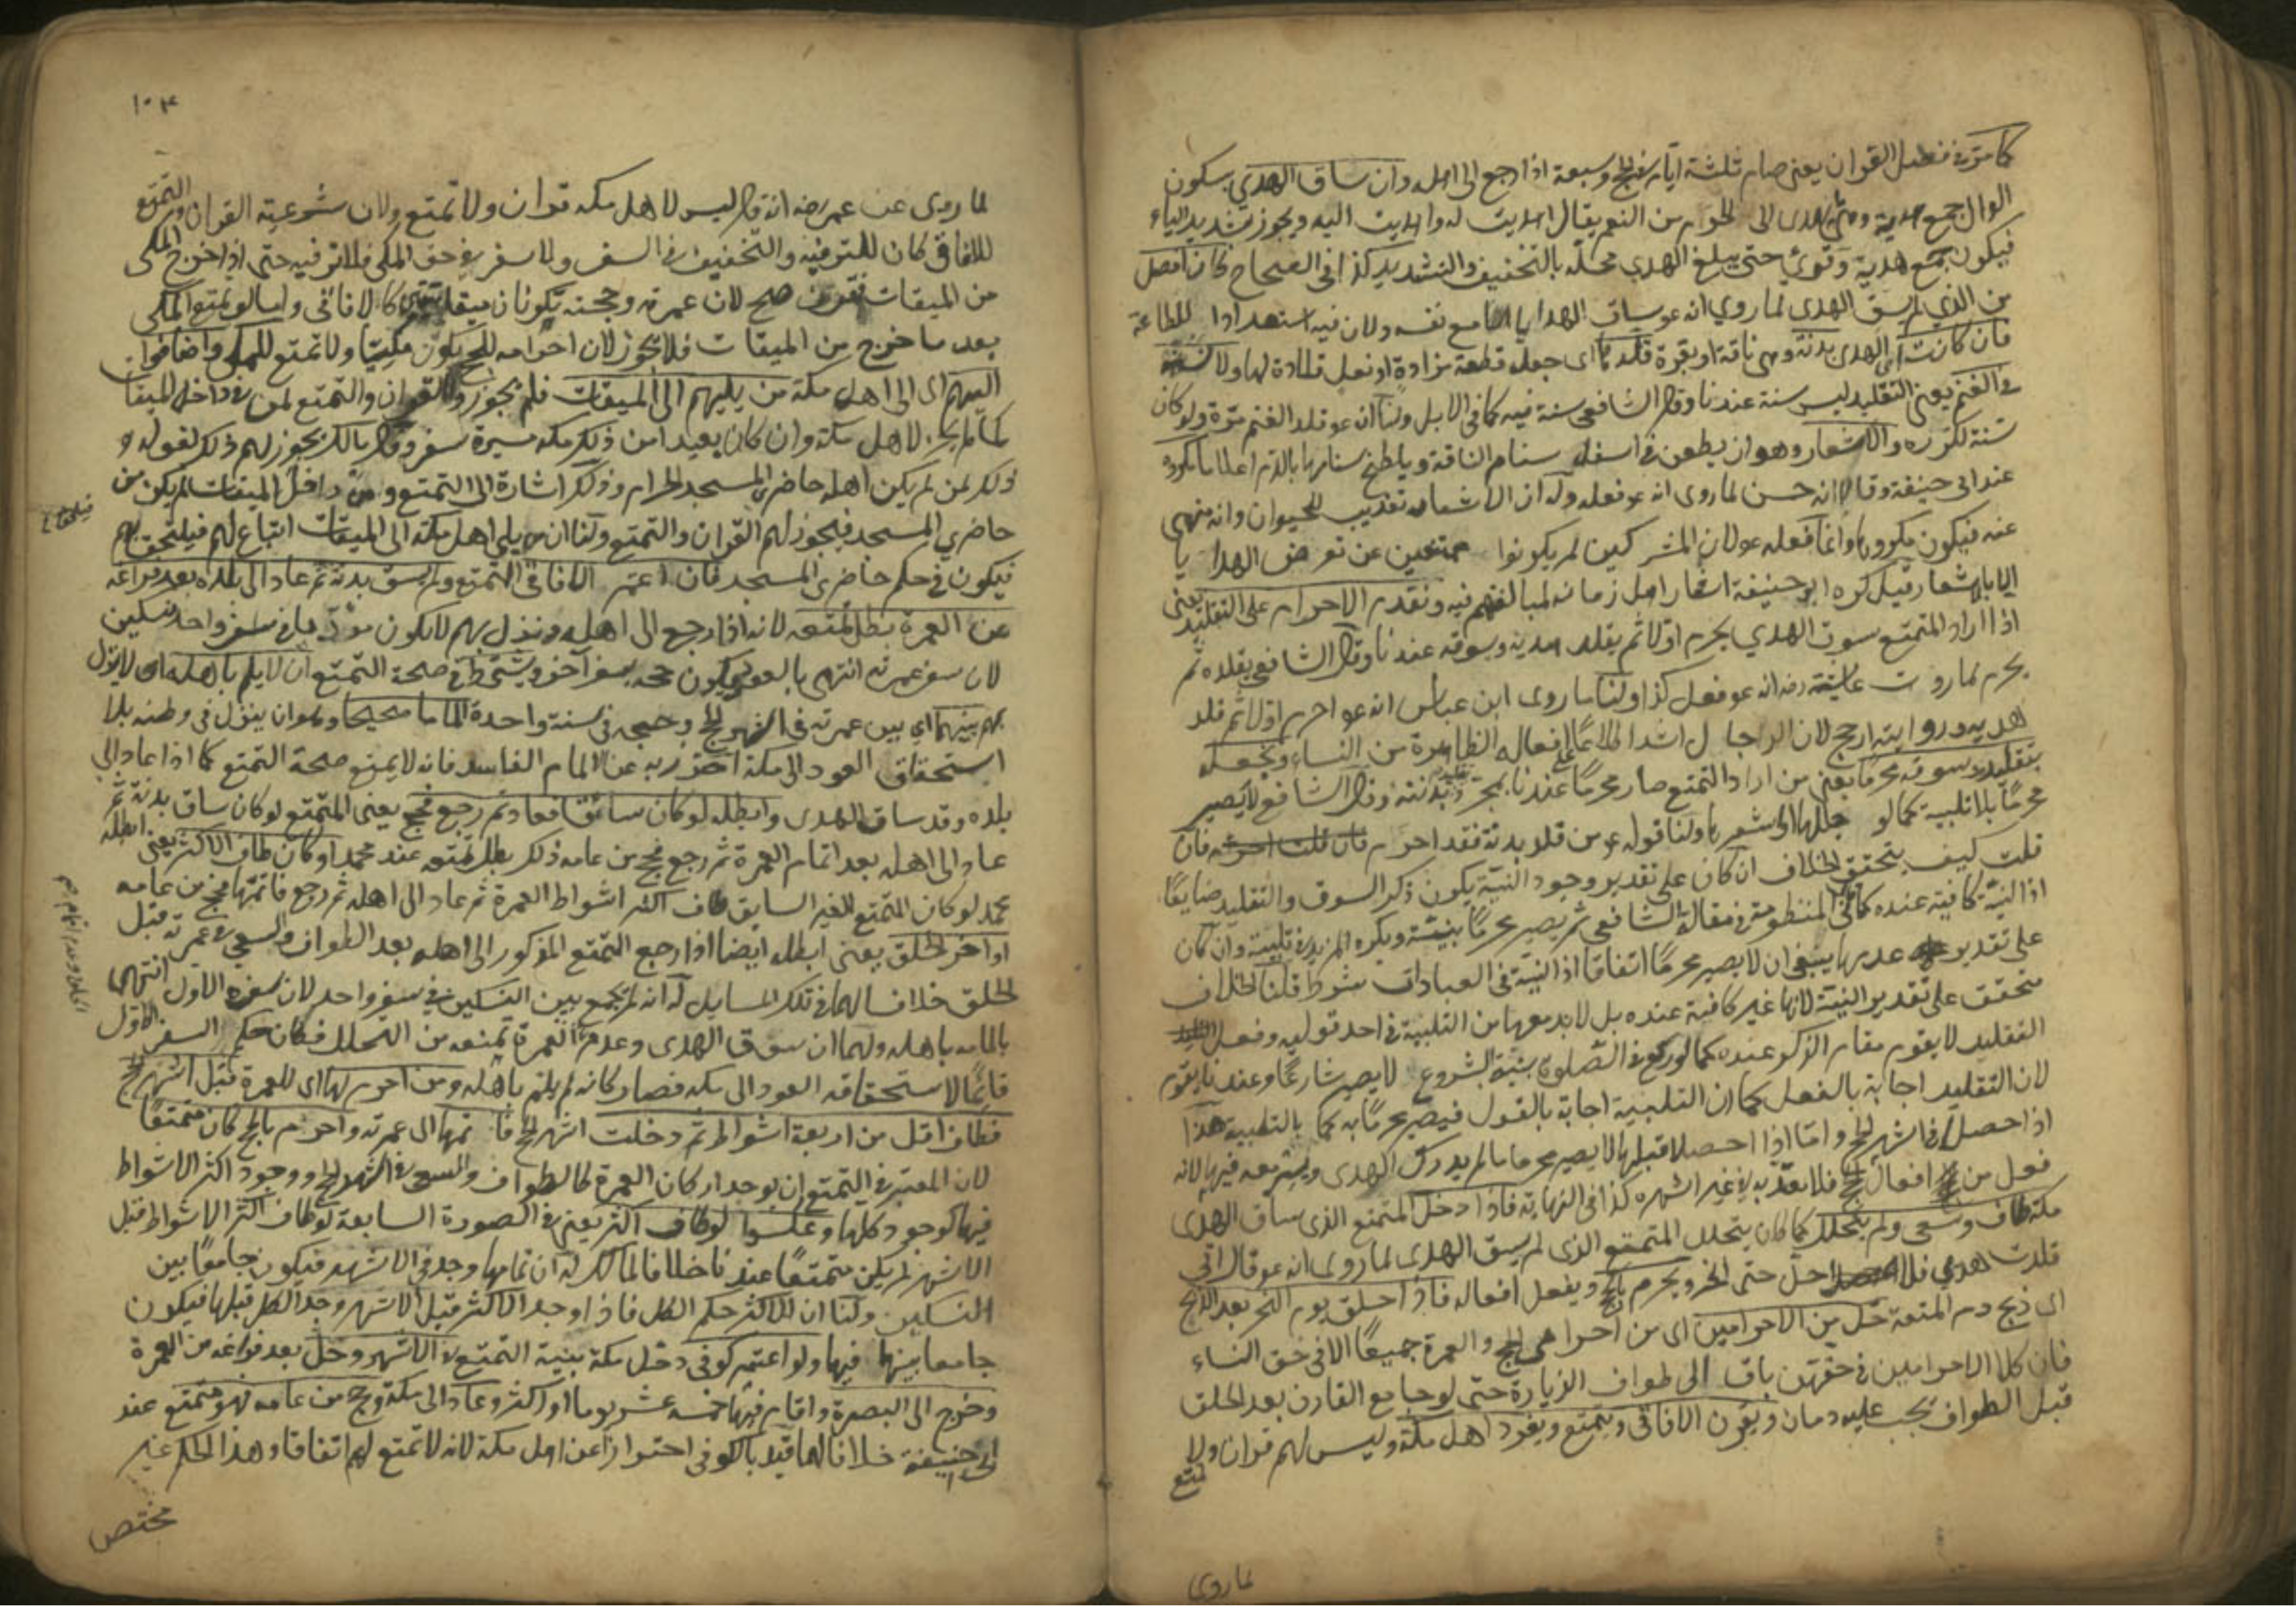 كما مرّ في فصل القران يعني صام ثلثة ايّام في الحج وسبعة اذا رجع الى اهله وان ساق الهدي بسكون
الدال جمع هدية وهي ما يهدى الى الحرم من النعم يقال اهديت له واهديت اليه ويجوز تشديد الياء
فيكون جمع هديّة وقرئ حتى يبلغ الهدي محلّه بالتخفيف والتشديد كذا في الصحاح كان افضل
من الذي لم يسق الهدى لما روي انه عم ساق الهدايا مع نفسه ولان فيه استعدادا للطاعة
فان كانت اى الهدى بدنة وهى ناقة او بقرة قلدها اى جعل قطعة مزادة او نعل قلادة لها ولا
في الغنم يعني التقليد ليس سنة عندنا وقال الشافعي سنة فيه كما في الابل ولنا انه عم قلد الغنم مرّة ولو كان
سنة لكرره والاشعار وهو ان يطعن في اسفل سنام الناقة ويلطخ سنامها بالدم اعلاما مكروه
عند ابى حنيفة وقالا انه حسن لما روى انه عم فعله وله ان الاشعار تعذيب للحيوان وانه منهى
عنه فيكون مكروها وانما فعله عم لان المشركين لم يكونوا ممتنعين عن تعرض الهدايا
الا بالاشعار قيل كره ابو حنيفة اشعار اهل زمانه لمبالغتهم فيه وتقدم الاحرام على التقليد يعني
اذا اراد المتمتع سوق الهدي يحرم اوّلا ثم يقلد هديه ويسوقه عندنا وقال الشافعي يقلده ثم
يحرم لما روت عايشة رضه انه عم فعل كذا ولنا ما روى ابن عباس انه عم احرم اوّلا ثم قلد
هديه وروايته ارجح لان الرجال اشد اطلاعًا على افعاله الظاهرة من النساء ونجعله
بتقليده وسوقه محرمًا يعني من اراد التمتع صار محرمًا عندنا بمجرد تقليد بدنته وقال الشافعي لا يصير
محرمًا بلا تلبية كما لو جللها او اشعرها ولنا قوله عم من قلد بدنة فقد احرم فان
قلت كيف يتحقق الخلاف ان كان على تقدير وجود النيّة يكون ذكر السوق والتقليد ضايعًا
اذ النيّة كافية عنده كما في المنظومة في مقالة الشافعي ثم يصير محرمًا بنيّته ويكره المزيد في تلبيته وان كان
على تقدير عدمها ينبغي ان لا يصير محرمًا اتفاقا اذ النيّة في العبادات شرط قلنا الخلاف
متحقق على تقدير النيّة لانها غير كافية عنده بل لا بد معها من التلبية في احد قوليه وفعل
التقليد لا يقوم مقام الذكر عنده كما لو ركع في الصلوة بنيّة الشروع لا يصير شارعًا وعندنا يقوم
لان التقليد اجابة بالفعل كما ان التلبية اجابة بالقول فيصير محرمًا به كما بالتلبية هذا
اذا حصلا في اشهر الحج وامّا اذا حصلا قبلها لا يصير محرما ما لم يدرك الهدى ويسير معه فيها لانه
فعل من افعال الحج فلا يعتدّ به في غير اشهره كذا في النهاية فاذا دخل المتمتع الذى ساق الهدى
مكة طاف وسعى ولم يتحلل كما كان يتحلل المتمتع الذى لم يسق الهدى لما روى انه عم قال انّي
قلدت هدي فلا احلّ حتى انحر ويحرم بالحج ويفعل افعاله فاذا حلق يوم النحر بعد الذبح
اى ذبح دم المتعة حلّ من الاحرامين اى من احرامى الحج والعمرة جميعًا الا في حق النساء
فان كلا الاحرامين في حقهن باق الى طواف الزيارة حتى لو جامع القارن بعد الحلق
قبل الطواف يجب عليه دمان ويقرن الافاقى ويتمتع ويفرد اهل مكة وليس لهم قران ولا
تمتع
لما روى
١٠٣
لما روى عن عمر رضه انه قال ليس لاهل مكه قران ولا تمتع ولان شرعية القران والتمتع
للافاقي كان للترفيه والتخفيف في السفر ولا سفر في حق المكى فلا ترفيه حتى اذا خرج المكى
من الميقات صح لان عمرته وحجته تكونان ميقاتيتين كالافاقى واما لو تمتع المكى
بعد ما خرج من الميقات فلا يجوز لان احرامه للحج يكون مكيّا ولا تمتع للمكى واضافوا
اليهم اى الى اهل مكة من يليهم الى الميقات فلم يجوزوا القران والتمتع لمن في داخل الميقات
كما لم يجز لاهل مكة وان كان بعيدا من ذلك مكه مسيرة سفر وقال مالك يجوز لهم ذلك لقوله و
ذلك لمن لم يكن اهله حاضري المسجد الحرام وذلك اشارة الى التمتع ومن داخل الميقات لم يكن من
حاضري المسجد فيجوز لهم القران والتمتع ولنا ان من يلى اهل مكة الى الميقات اتباع لهم فيلتحق بهم
فيكون في حكم حاضرى المسجد فان اعتمر الافاقى المتمتع ولم يسق بدنة ثم عاد الى بلده بعد فراغه
عن العمرة بطل تمتعه لانه اذا رجع الى اهله ونزل بهم لا يكون مؤدّيا في سفر واحد نسكين
لان سفر عمرته انتهى بالعود ويكون حجه بسفر آخر ويشترط في صحة التمتع ان لا يلم باهله اى لا ينزل
بهم بينهما اي بين عمرته في اشهر الحج وحجه في سنة واحدة الماما صحيحا وهو ان ينزل في وطنه بلا
استحقاق العود الى مكة احترز به عن الالمام الفاسد فانه لا يمنع صحة التمتع كما اذا عاد الى
بلده وقد ساق الهدى وابطله لو كان سائقا فعاد ثم رجع فحج يعنى المتمتع لو كان ساق بدنة ثم
عاد الى اهله بعد اتمام العمرة ثم رجع فحج من عامه ذلك بطل تمتعه عند محمد او كان طاف الاكثر يعني ابطله
محمد لو كان المتمتع الغير السايق طاف اكثر اشواط العمرة ثم عاد الى اهله ثم رجع فاتمّها فحج من عامه
او اخر الحلق يعنى ابطله ايضا اذا رجع المتمتع المذكور الى اهله بعد الطواف والسعي في عمرته قبل
الحلق خلافا لهما في تلك المسايل له انه لم يجمع بين النسكين في سفر واحد لان سفره الاول انتهى
بالمامه باهله ولهما ان سوق الهدى وعدم العمرة تمنعه من التحلل فكان حكم السفر الاوّل
قائمًا لاستحقاقه العود الى مكه فصار كانه لم يلم باهله ومن احرم لها اى للعمرة قبل اشهر الحج
فطاف اقل من اربعة اشواط ثم دخلت اشهر الحج فا تمها الى عمرته واحرم بالحج كان متمتعًا
لان المعتبر في التمتع ان يوجد اركان العمرة كالطواف والسعى في اشهر الحج ووجود اكثر الاشواط
فيها كوجود كلها وعكسوا لو طاف اكثر يعني في الصورة السابعة لو طاف اكثر الاشواط قبل
الاشهر لم يكن متمتعًا عندنا خلافا لمالك له ان تمامها وجد في الاشهر فيكون جامعًا بين
النسكين ولنا ان للاكثر حكم الكل فاذا وجد الاكثر قبل الاشهر وجد الكل قبلها فيكون
جامعا بينهما فيها ولو اعتمر كوفى دخل مكة بنية التمتع في الاشهر وحلّ بعد فراغه من العمرة
وخرج الى البصرة واقام فيها خمسة عشر يوما او اكثر وعاد الى مكة وحج من عامه فهو متمتع عند
ابى حنيفة خلافا لهما قيد بالكوفى احترازا عن اهل مكة لانه لا تمتع لهم اتفاقا وهذا الحكم غير
مختص